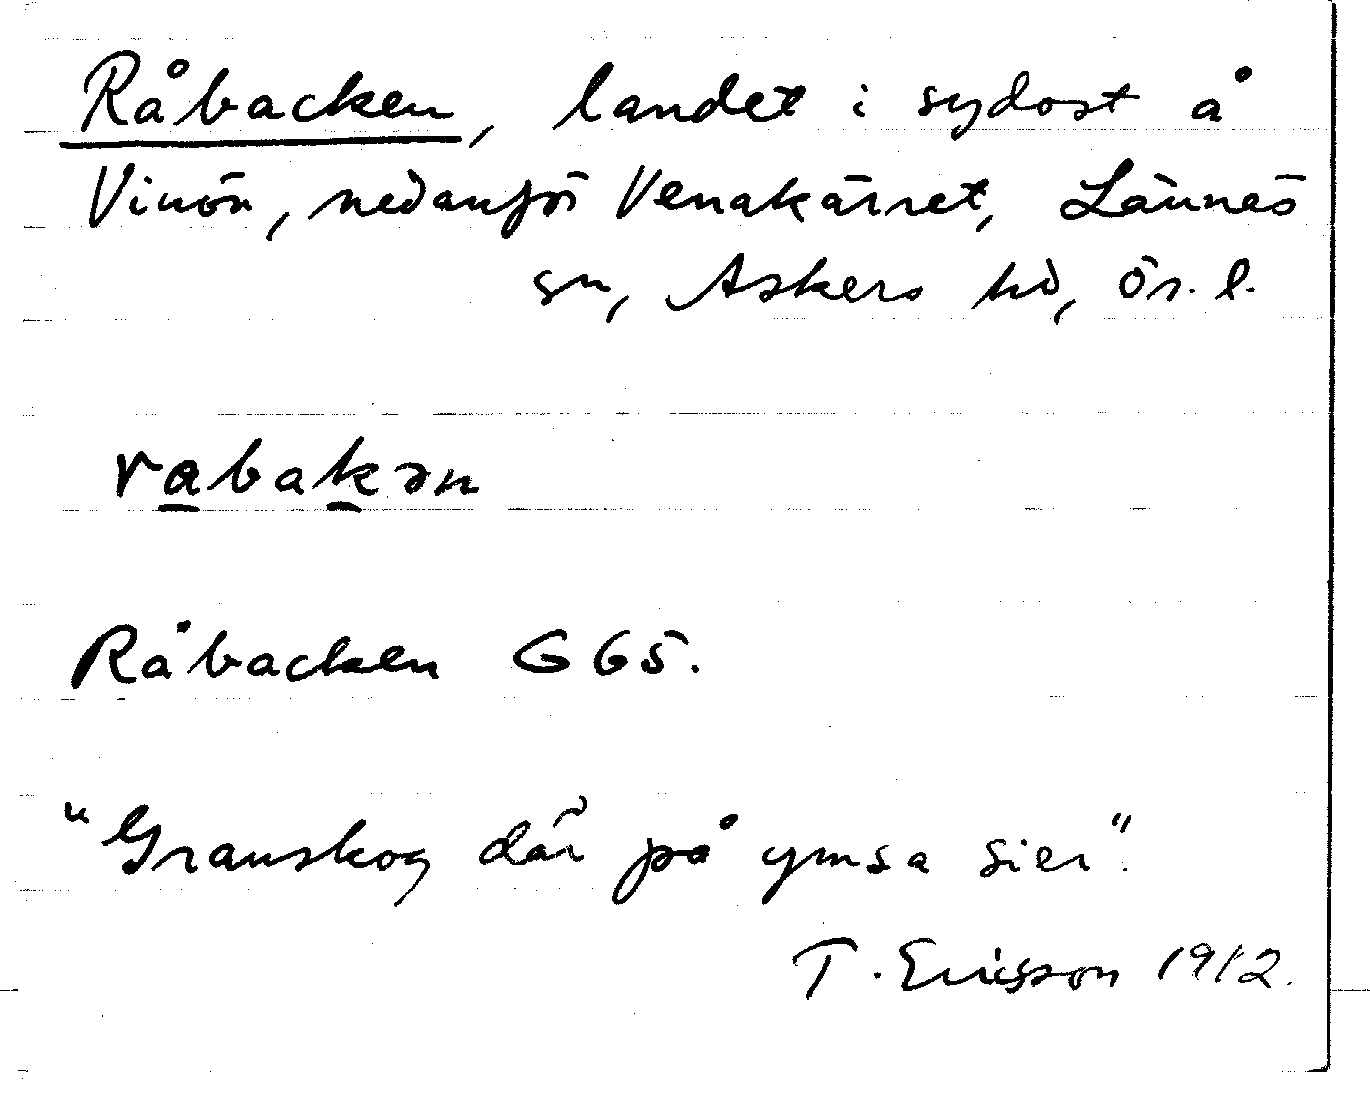 Råbacken, landet i sydost å
Vinön, nedanför Venakärret, Lännäs
sn, Askers hd, Ör. l.
rabakən
Råbacken G 65.
"Granskog där på ymsa sier".
T. Ericsson 1912.